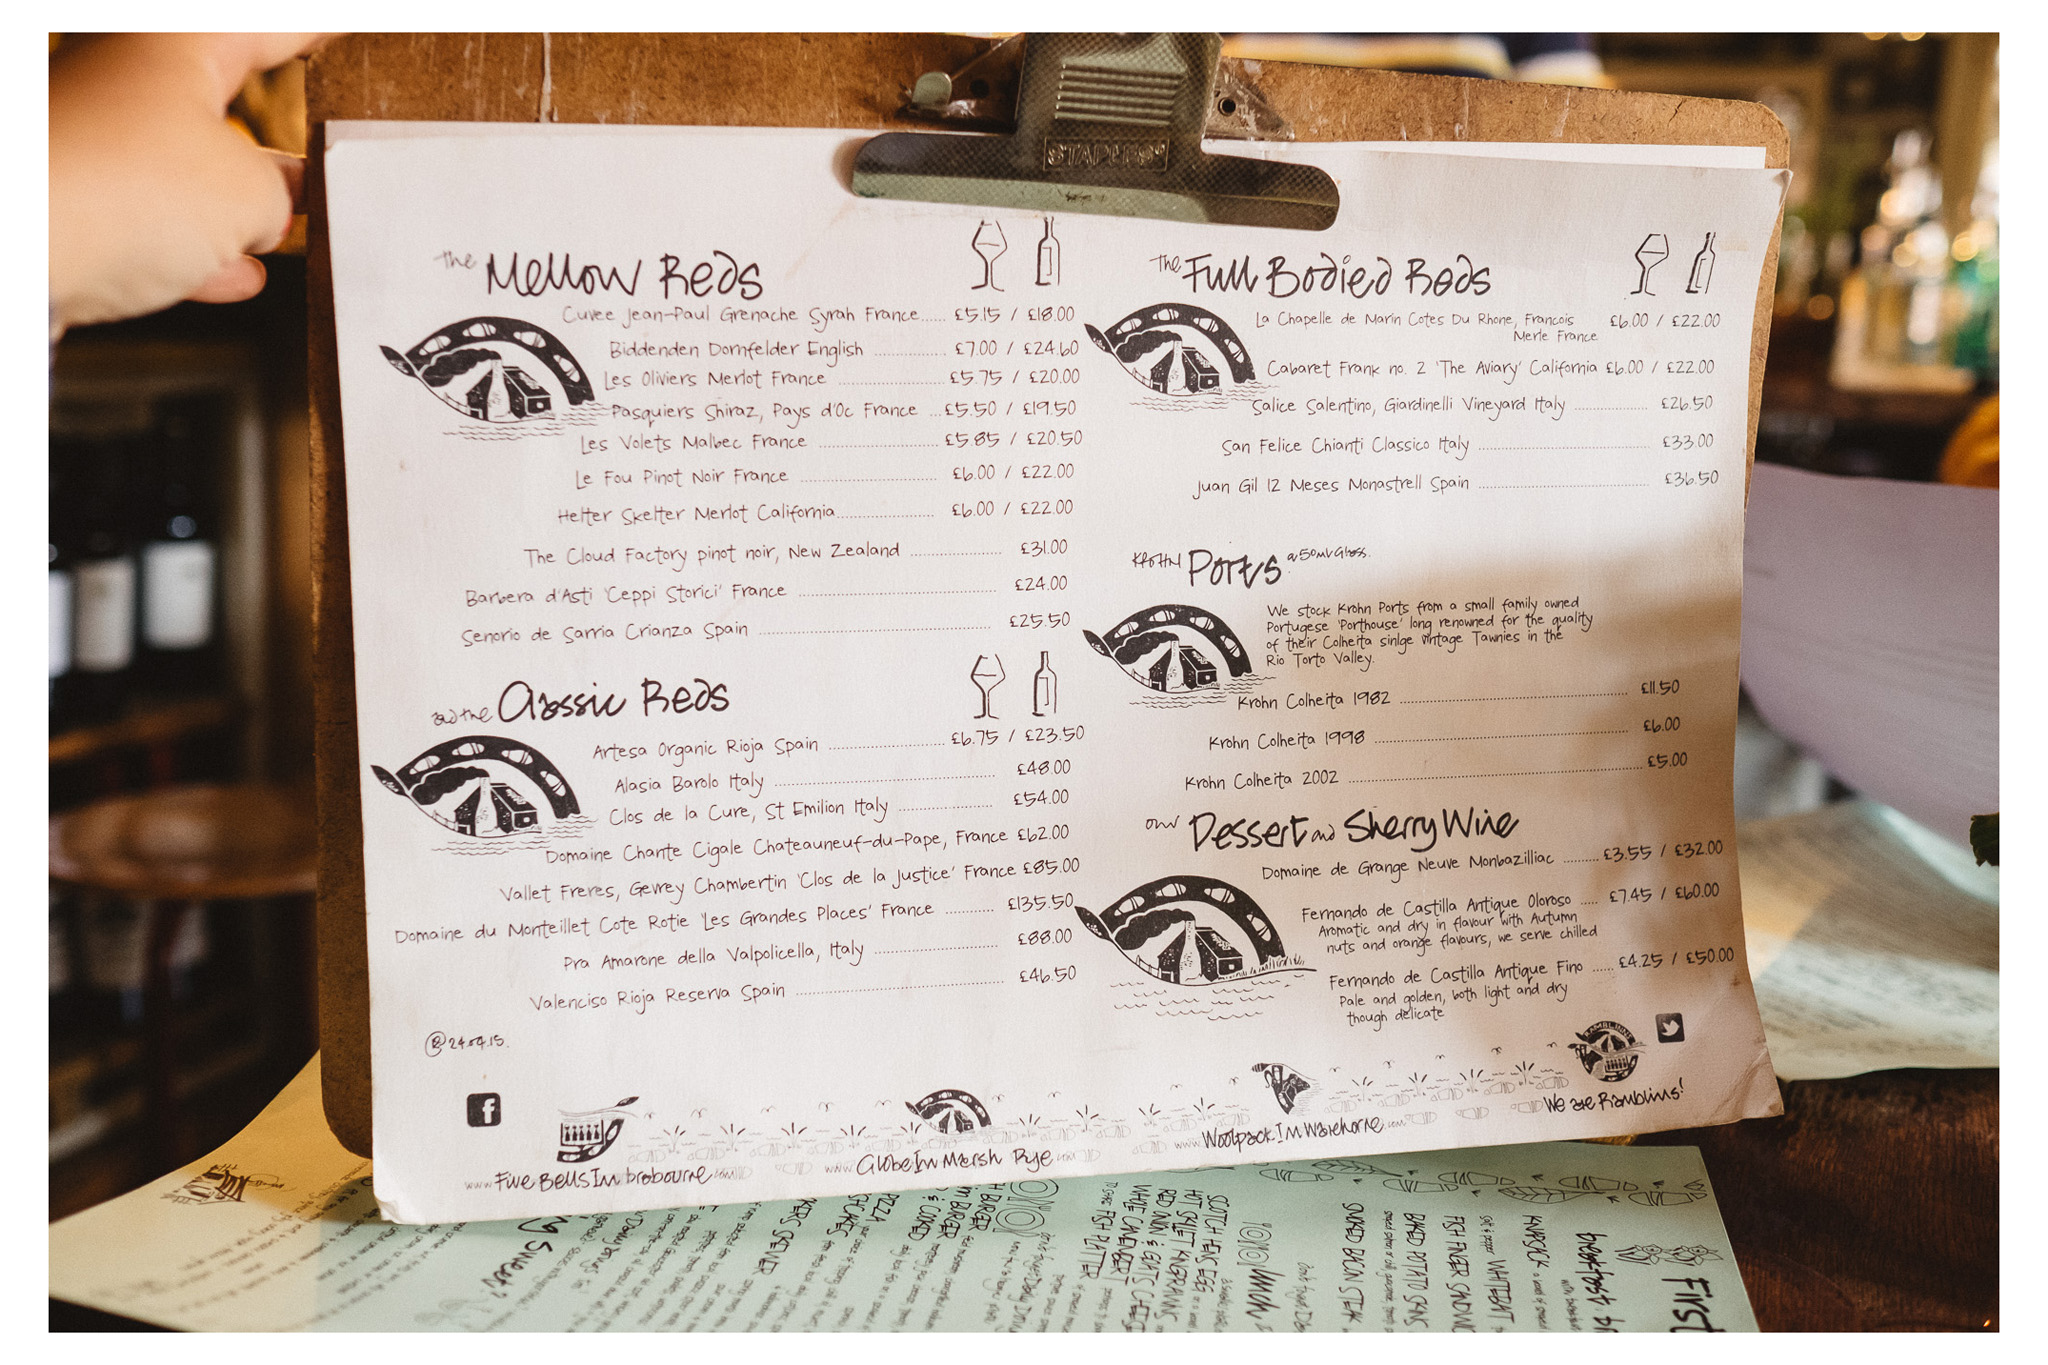 STAPLES
the Mellow Reds
Cuvee Jean-Paul Grenache Syrah France...... £5.15 / £18.00
Biddenden Dornfelder English .................. £7.00 / £24.60
Les Oliviers Merlot France .......................... £5.75 / £20.00
Pasquiers Shiraz, Pays d'Oc France ...£5.50 / £19.50
Les Volets Malbec France ............................. £5.85 / £20.50
Le Fou Pinot Noir France ................................. £6.00 / £22.00
Helter Skelter Merlot California........................ £6.00 / £22.00
The Cloud Factory pinot noir, New Zealand ...................... £31.00
Barbera d'Asti 'Ceppi Storici' France ................................................ £24.00
Senorio de Sarria Crianza Spain ........................................................ £25.50
and the Classic Reds
Artesa Organic Rioja Spain ............................ £6.75 / £23.50
Alasia Barolo Italy ...................................................... £48.00
Clos de la Cure, St Emilion Italy ....................... £54.00
Domaine Chante Cigale Chateauneuf-du-Pape, France £62.00
Vallet Freres, Gevrey Chambertin 'Clos de la Justice' France £85.00
Domaine du Monteillet Cote Rotie 'Les Grandes Places' France ............ £135.50
Pra Amarone della Valpolicella, Italy ............................... £88.00
Valenciso Rioja Reserva Spain .................................................... £46.50
24.04.15.
The Full Bodied Reds
La Chapelle de Marin Cotes Du Rhone, Francois £6.00 / £22.00
Merle France
Cabaret Frank no. 2 'The Aviary' California £6.00 / £22.00
Salice Salentino, Giardinelli Vineyard Italy ................. £26.50
San Felice Chianti Classico Italy ........................................ £33.00
Juan Gil 12 Meses Monastrell Spain ........................................ £36.50
KROHN Ports a 50ml Glass.
We stock Krohn Ports from a small family owned
Portugese 'Porthouse' long renowned for the quality
of their Colheita sinlge vintage Tawnies in the
Rio Torto Valley.
Krohn Colheita 1982 .................................................... £11.50
Krohn Colheita 1998 ............................................................ £6.00
Krohn Colheita 2002 .................................................................... £5.00
our Dessert and Sherry Wine
Domaine de Grange Neuve Monbazilliac ........ £3.55 / £32.00
Fernando de Castilla Antique Oloroso .... £7.45 / £60.00
Aromatic and dry in flavour with Autumn
nuts and orange flavours, we serve chilled
Fernando de Castilla Antique Fino ..... £4.25 / £50.00
Pale and golden, both light and dry
though delicate
f
www.FiveBellsInnbrabourne.com
www.GlobeInnMarshRye.com
www.WoolpackInnWarehorne.com
RAMBLINNS
We are Ramblinns!
SMOKED BACON STEAK
BAKED POTATO SKINS
FISH FINGER SANDWICH
WHITEBAIT
KNAPSACK
breakfast
First
SCOTCH HENS EGG
WHOLE CAMEMBERT
FISH PLATTER
BURGER
PIZZA
SKEWER